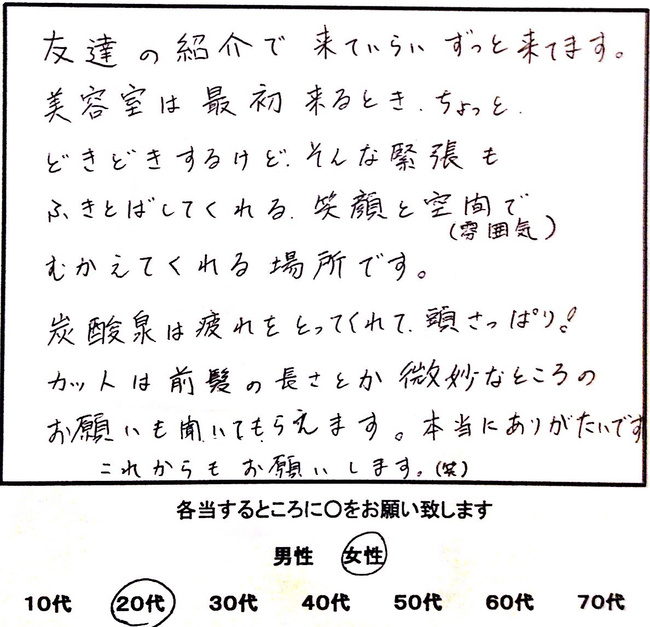 友達の紹介で 来ていらい ずっと来てます。
美容室は 最初 来るとき、ちょっと、
どきどきするけど、そんな緊張も
ふきとばしてくれる、笑顔と空間で
(雰囲気)
むかえてくれる 場所です。
炭酸泉は疲れをとってくれて、頭さっぱり!
カットは前髪の長さとか微妙なところの
お願いも聞いてもらえます。本当にありがたいです
これからもお願いします。(笑)
各当するところに〇をお願い致します
男性 女性
10代 20代 30代 40代 50代 60代 70代